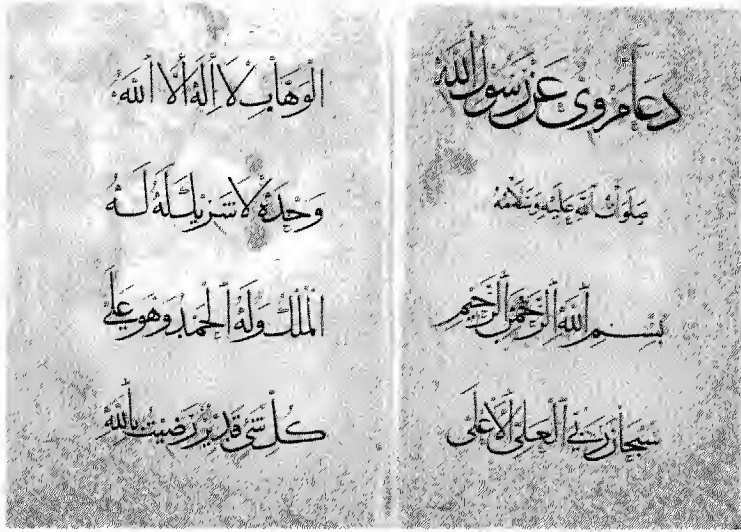 دعا مروى عن رسول الله
صلوات الله عليه وسلامه
بسم الله الرحمن الرحيم
سبحان ربي العلي الأعلى
الوهاب لا إله إلا الله
وحده لا شريك له له
الملك وله الحمد وهو على
كل شئ قدير رضيت بالله